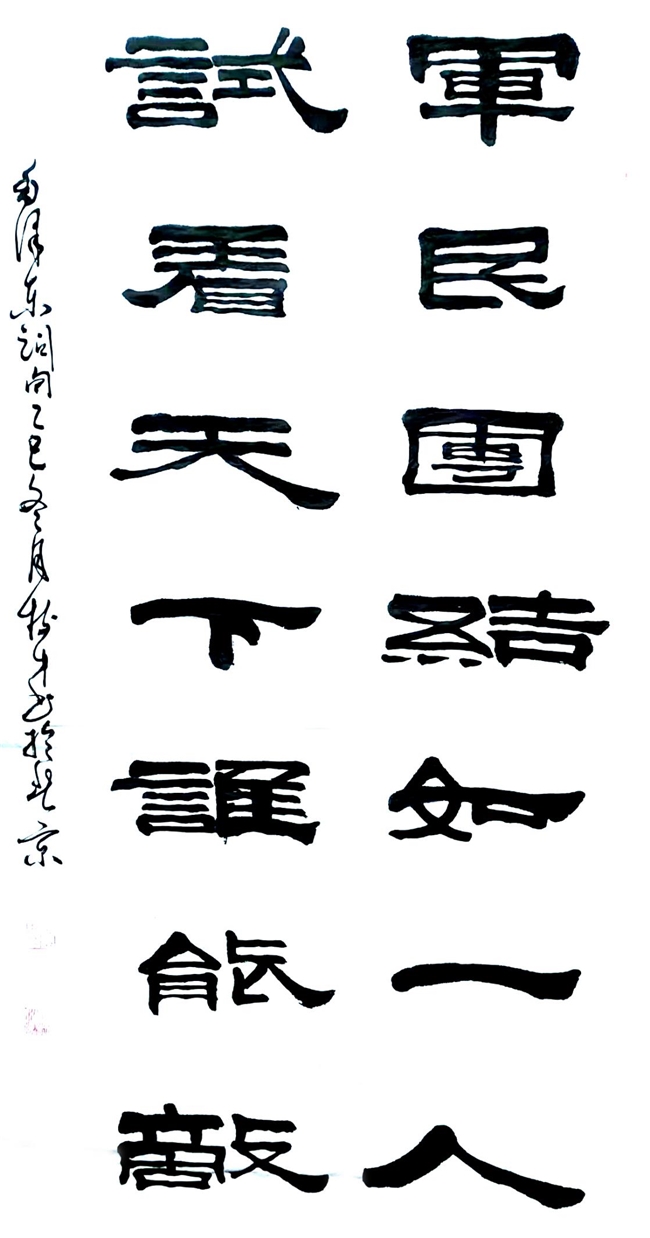 軍民團結如一人
試看天下誰能敵
毛泽东词句乙巳冬月树才书於北京